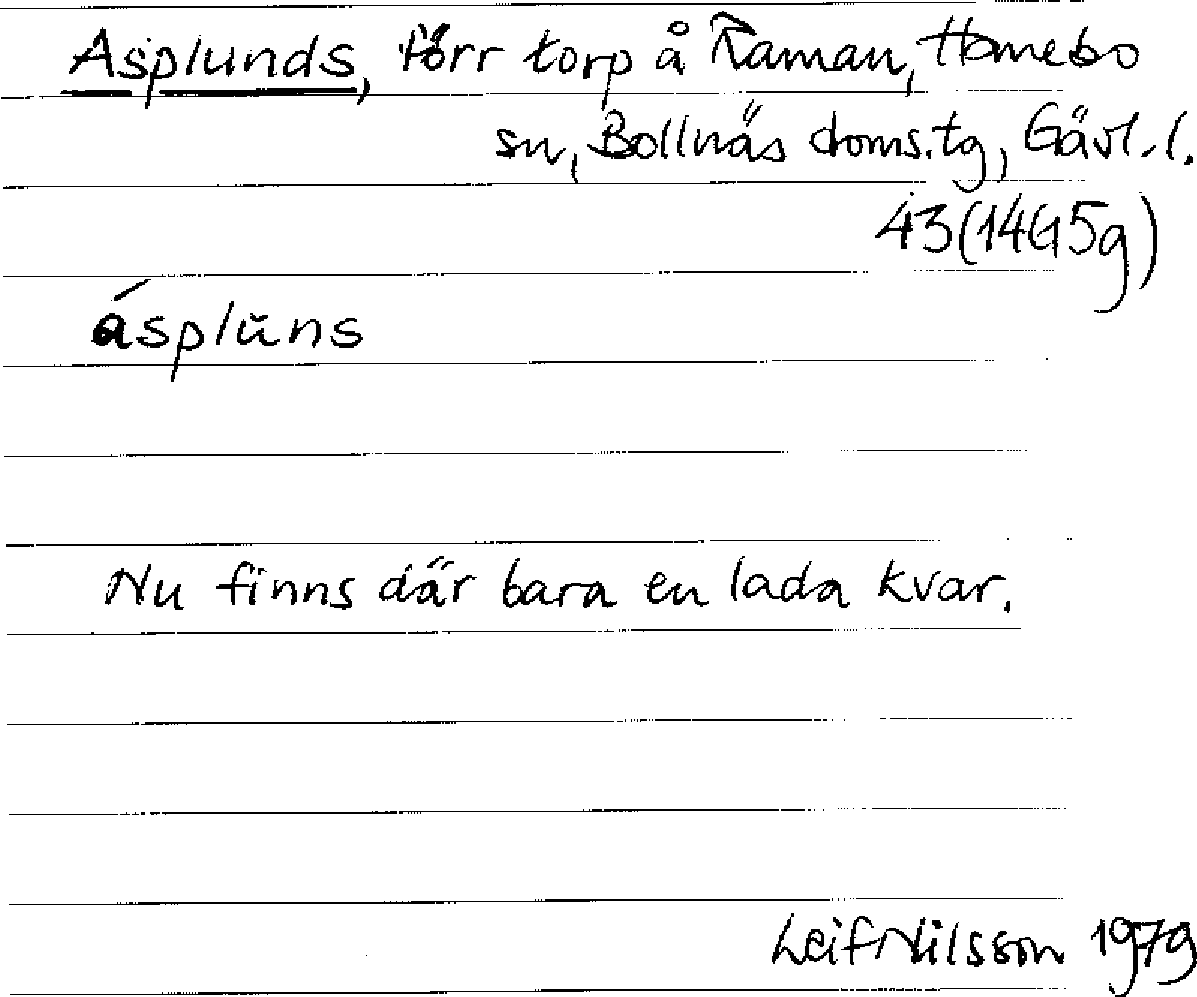 Asplunds, förr torp å Raman, Hanebo
sn, Bollnäs doms.tg, Gävl.l.
43(14G5g)
ásplŭns
Nu finns där bara en lada kvar.
Leif Nilsson 1979